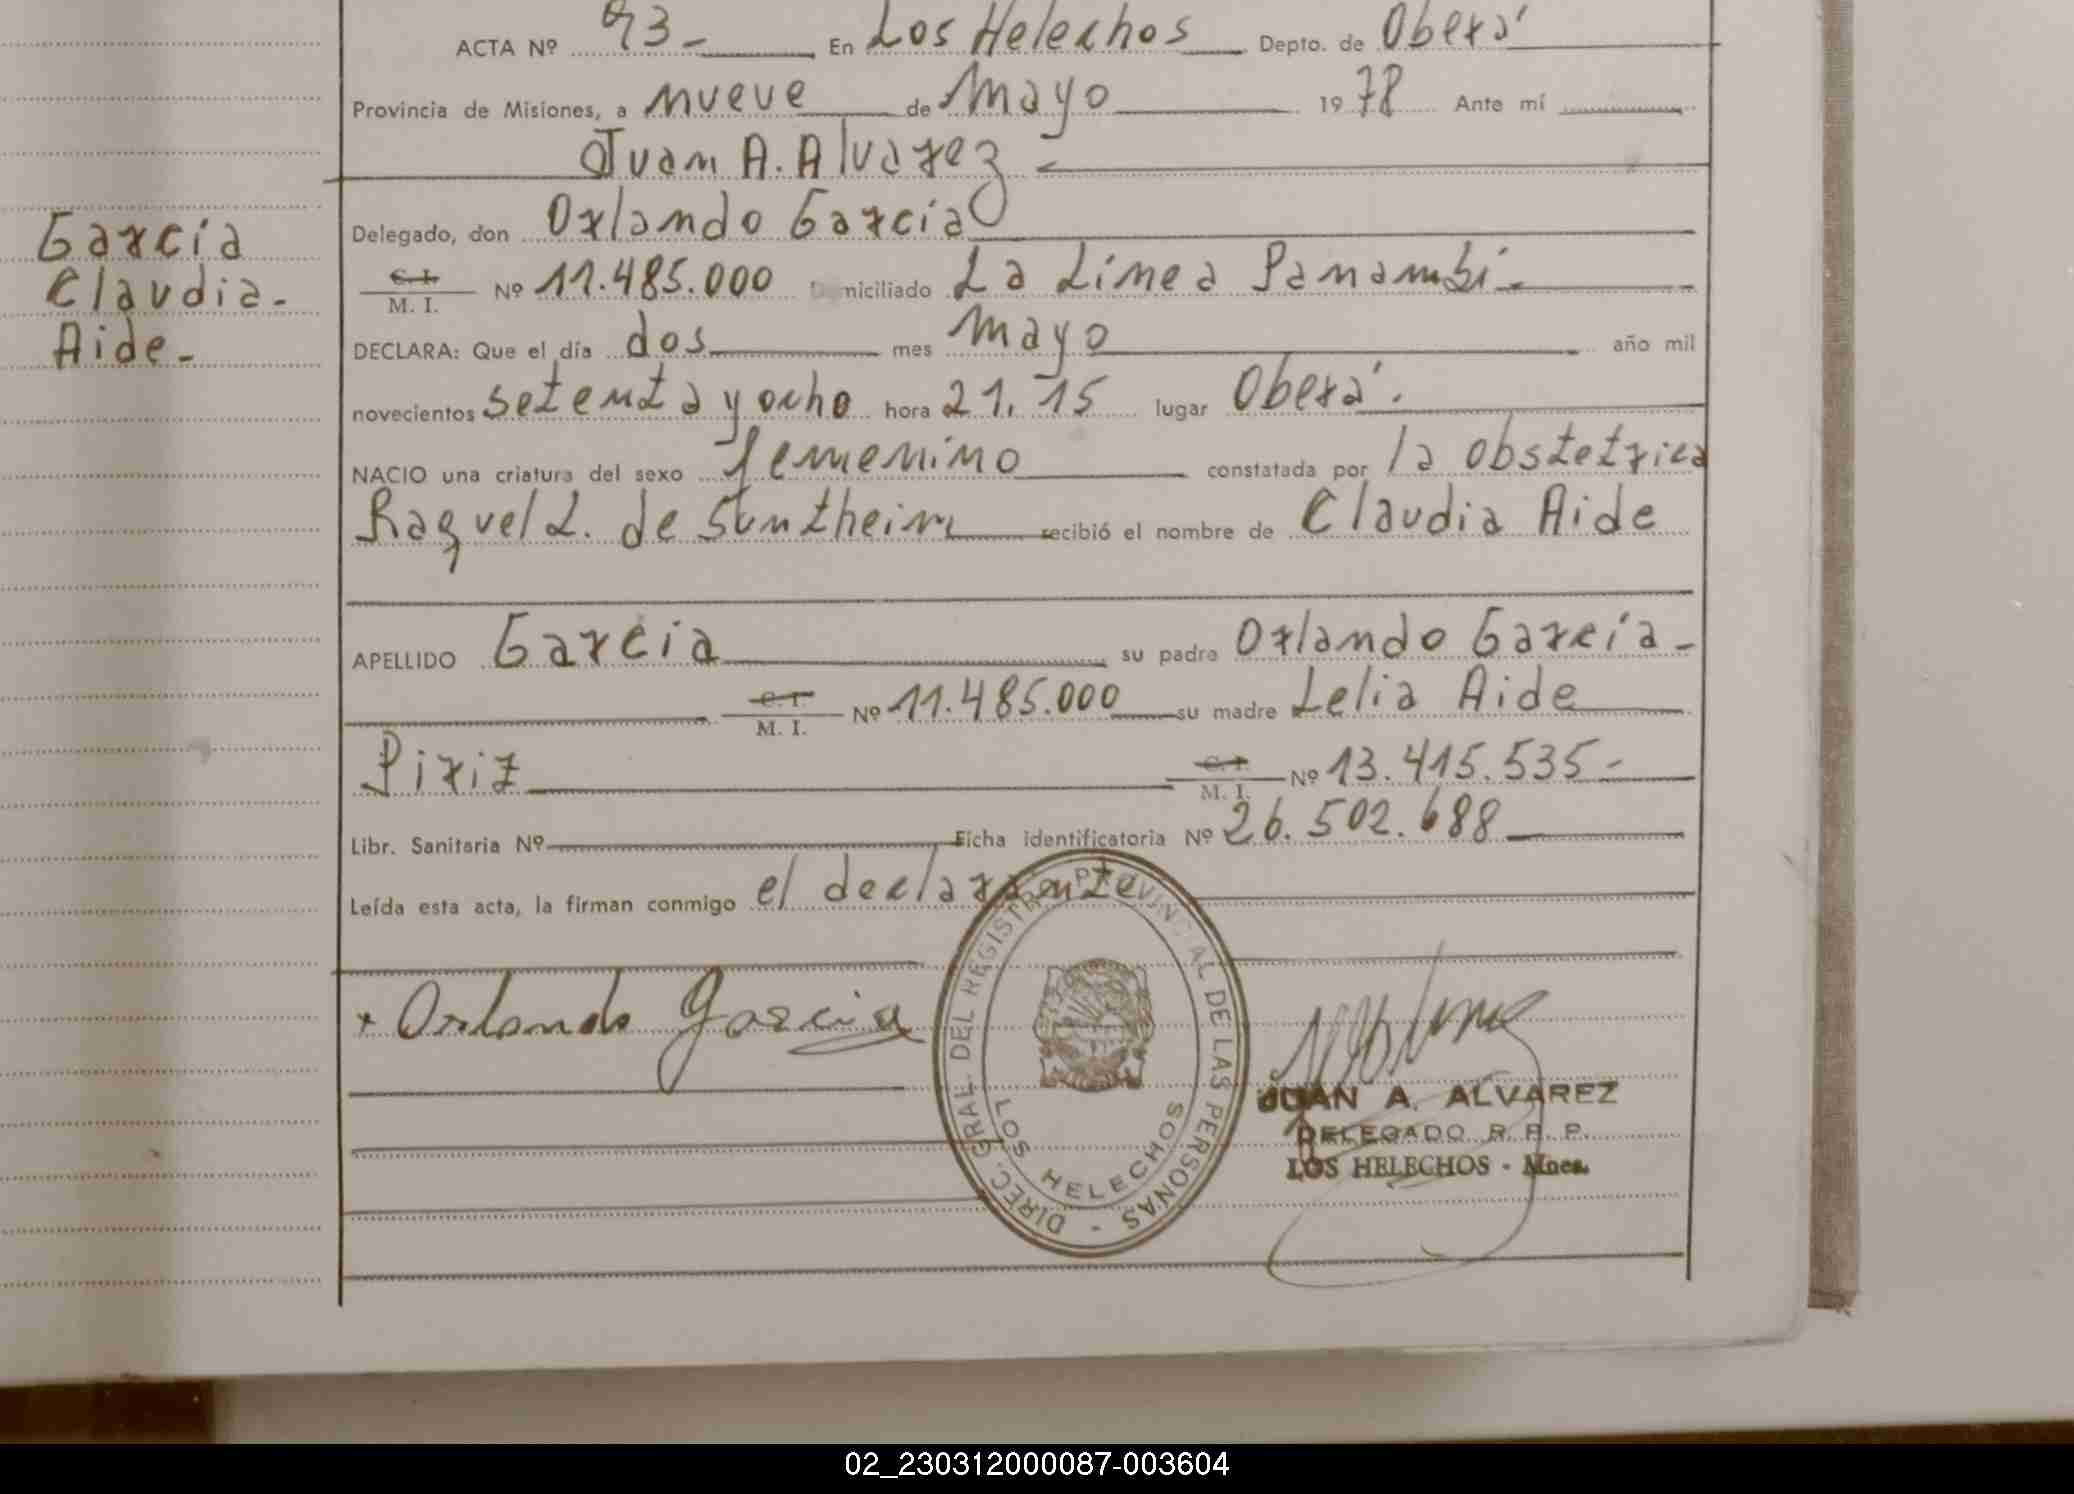 ACTA Nº 93- En Los Helechos Depto. de Oberá
Provincia de Misiones, a nueve de Mayo 1978 Ante mí
Juan A. Alvarez
Delegado, don Orlando Garcia
García
Claudia.
Aide-
C. I. M. I. Nº 11.485.000 Domiciliado La Linea Panambí-
DECLARA: Que el día dos mes Mayo año mil
novecientos setenta y ocho hora 21,15 lugar Oberá.
NACIO una criatura del sexo femenino constatada por la obstetrica
Raquel L. de Suntheim recibió el nombre de Claudia Aide
APELLIDO Garcia su padre Orlando García-
C. I. M. I. Nº 11.485.000 su madre Lelia Aide
Piriz C. I. M. I. Nº 13.415.535-
Libr. Sanitaria Nº Ficha identificatoria Nº 26.502.688
Leída esta acta, la firman conmigo el declarante
Orlando Garcia
DIREC. GRAL. DEL REGISTRO PROVINCIAL DE LAS PERSONAS -
LOS HELECHOS
JUAN A. ALVAREZ
DELEGADO R. P. P.
LOS HELECHOS - Mnes.
02_230312000087-003604